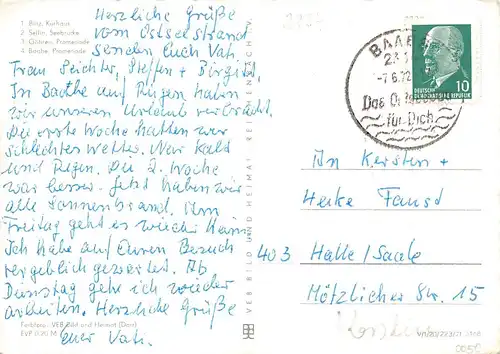 1. Binz, Kurhaus
2. Sellin, Seebrücke
3. Göhren, Promenade
4. Baabe, Promenade
Herzliche Grüße
vom Ostseestrand
senden Euch Vati,
Frau Seichter, Steffen + Birgit.
In Baabe auf Rügen haben
wir unseren Urlaub verbracht.
Die erste Woche hatten wir
schlechtes Wetter. Nur kalt
und Regen. Die 2. Woche
war besser. Jetzt haben wir
alle Sonnenbrand. Am
Freitag geht es wieder heim.
Ich habe auf Euren Besuch
vergeblich gewartet. Ab
Dienstag gehe ich wieder
arbeiten. Herzliche Grüße
Euer Vati.
Farbfoto: VEB Bild und Heimat (Darr)
EVP 0,20 M
VEB BILD UND HEIMAT REICHENBACH I. V.
BAABE
-7.6.72
Das Ostseebad
für Dich
10
DEUTSCHE
DEMOKRATISCHE REPUBLIK
An Kersten +
Heike Faust
403 Halle/Saale
Mötzlicher Str. 15
0056